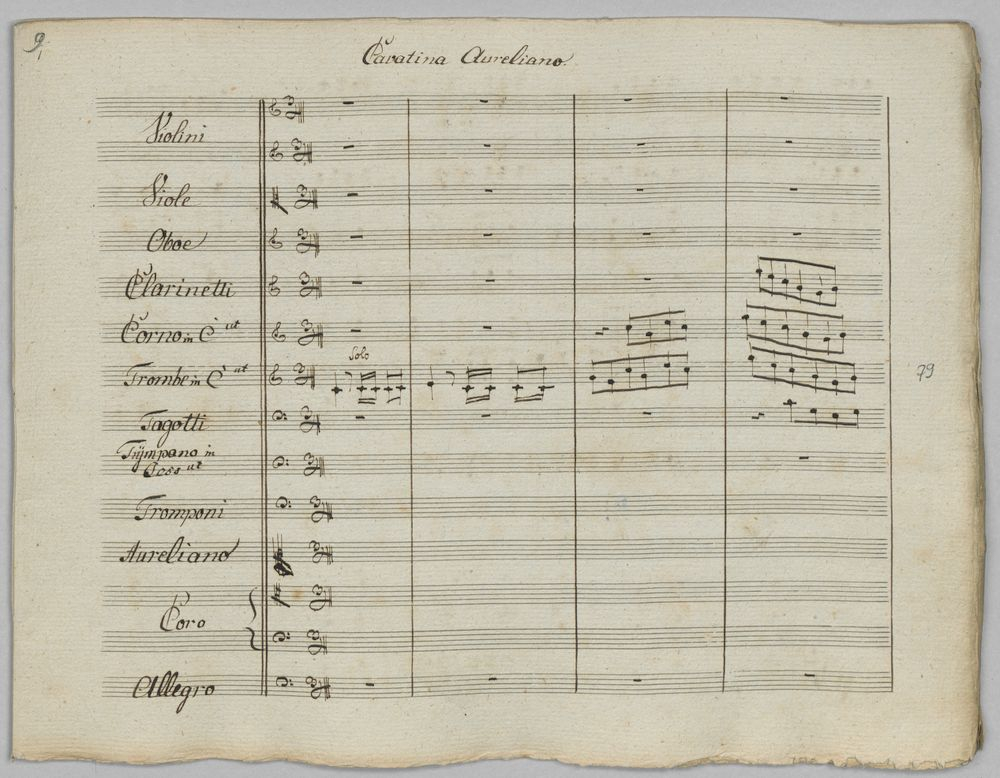 9
Cavatina Aureliano.
Violini
Viole
Oboe
Clarinetti
Corno in C ut
Solo
Trombe in C ut
79
Fagotti
Tÿmpano in
ut
Tromponi
Aureliano
Coro
Allegro